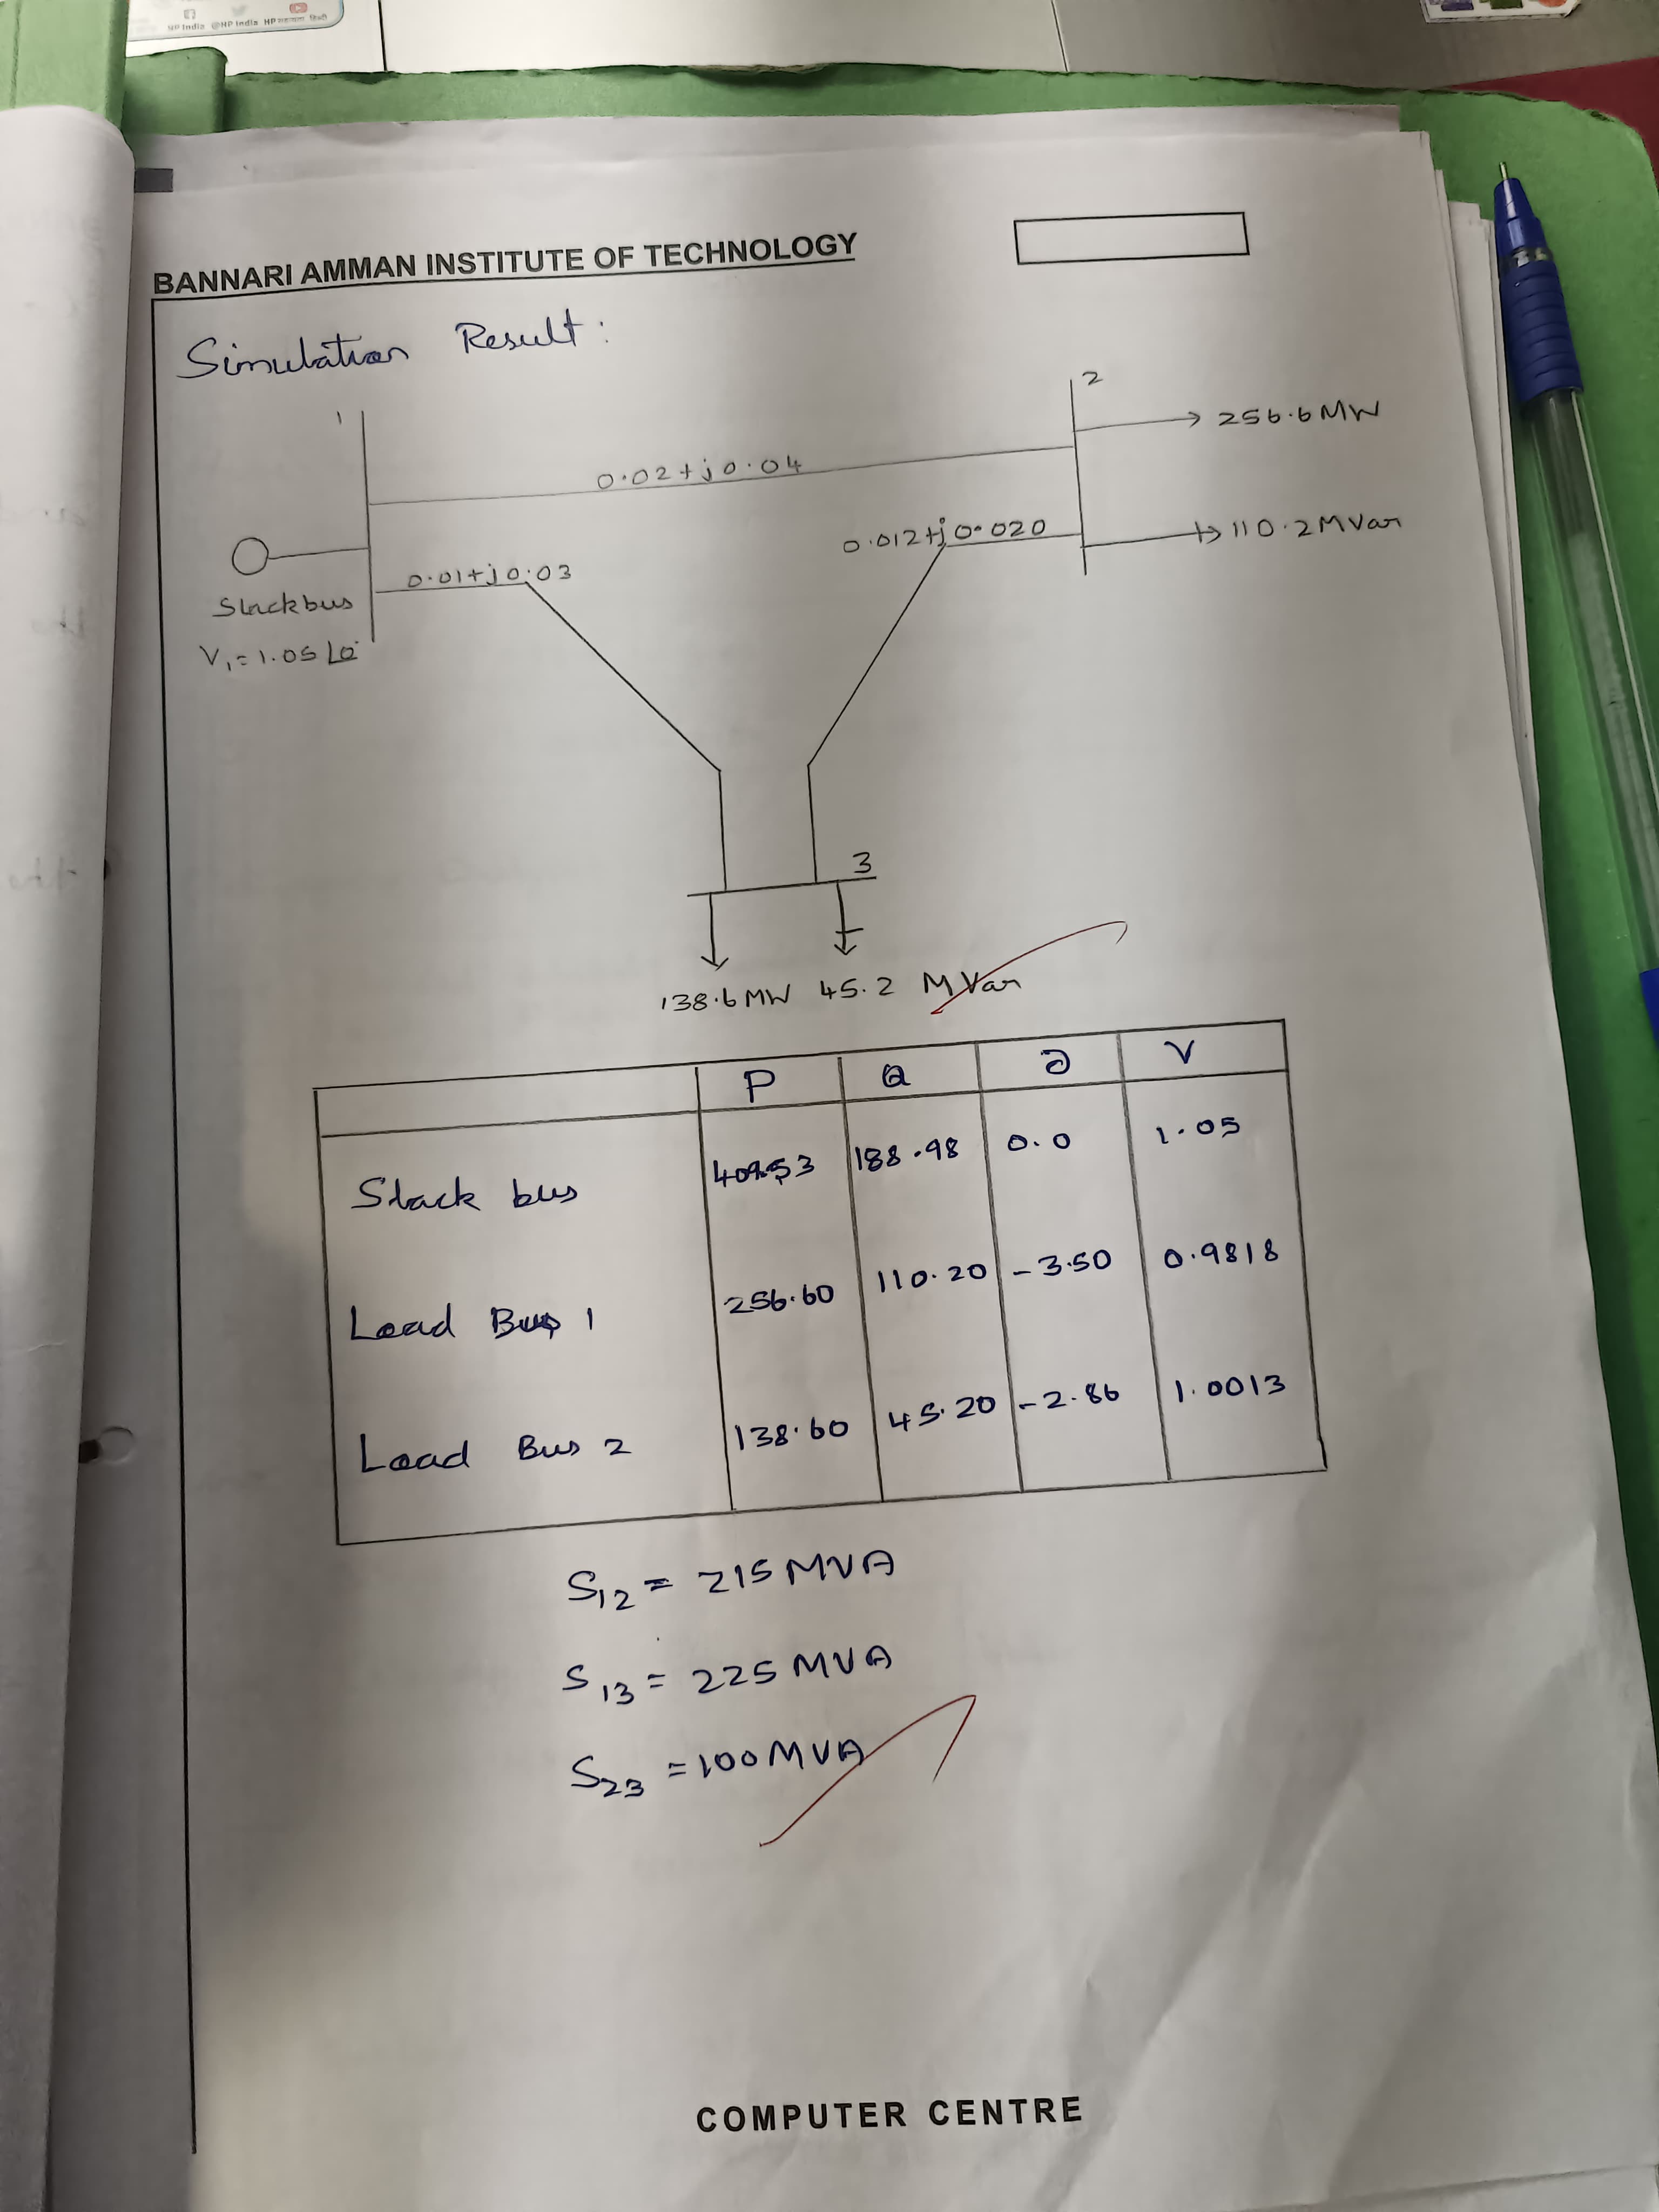 HP India @HP India HP
BANNARI AMMAN INSTITUTE OF TECHNOLOGY
Simulation Result:
1
2
256.6 MW
0.02+j0.04
0.012+j0.020
110.2 MVar
0.01+j0.03
Slack bus
V₁=1.05∠0°
3
138.6 MW 45.2 MVar
P Q ∂ V
Slack bus 409.53 188.98 0.0 1.05
Load Bus 1 256.60 110.20 -3.50 0.9818
Load Bus 2 138.60 45.20 -2.86 1.0013
S₁₂ = 215 MVA
S₁₃ = 225 MVA
S₂₃ = 100 MVA
COMPUTER CENTRE